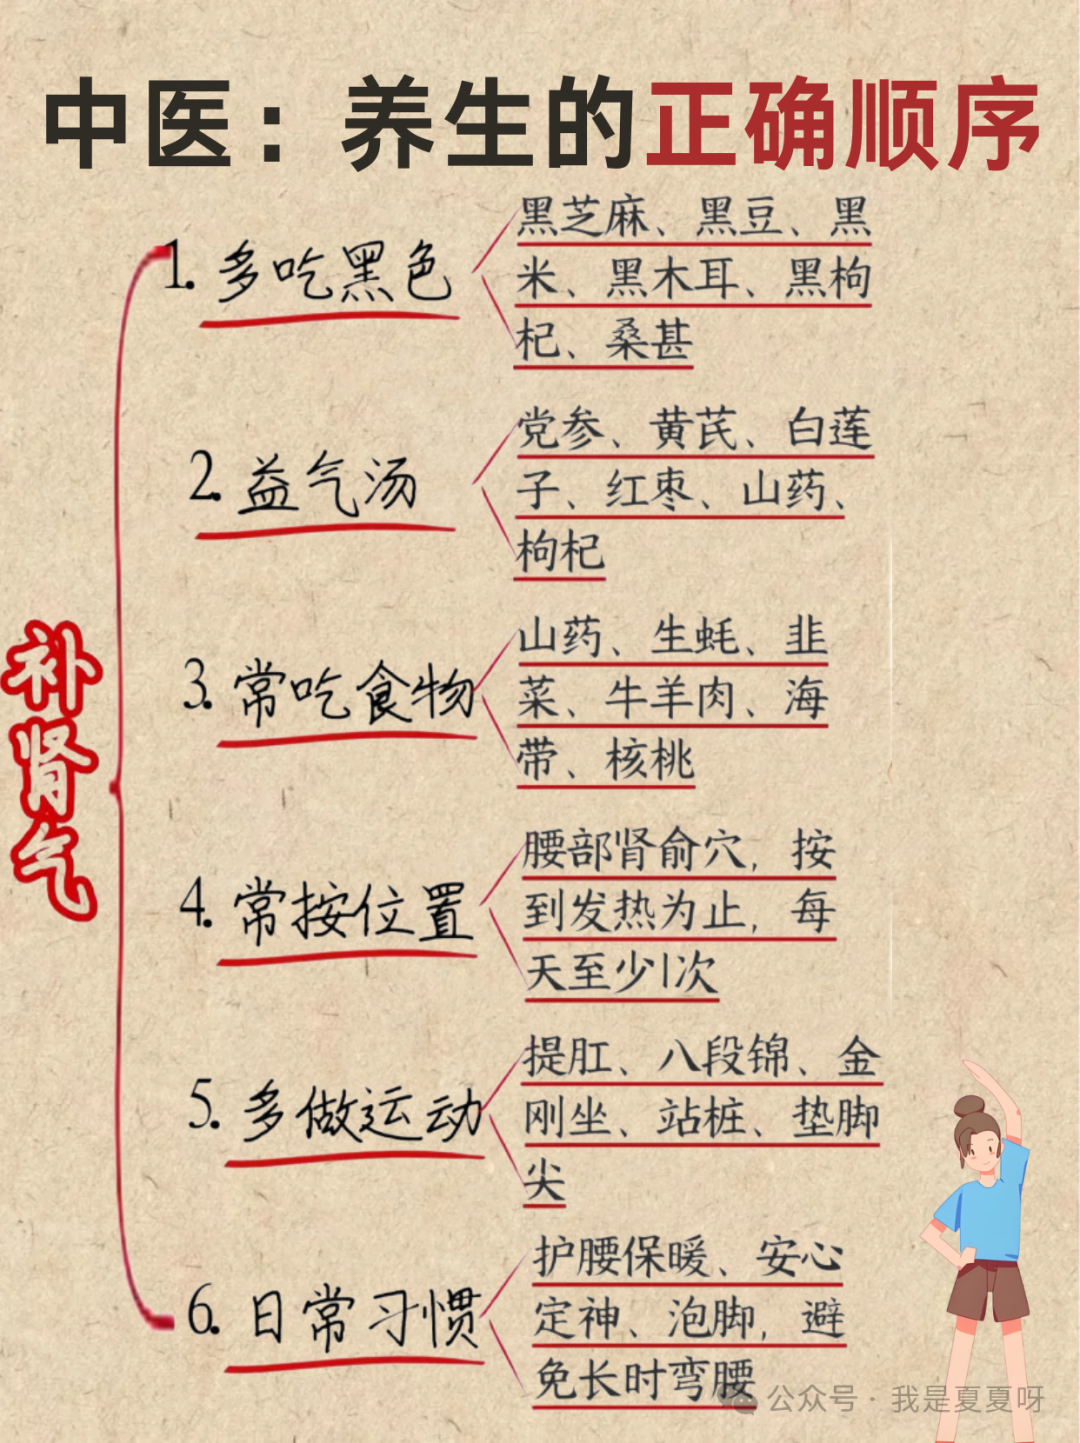 中医：养生的正确顺序
补肾气
1. 多吃黑色
黑芝麻、黑豆、黑
米、黑木耳、黑枸
杞、桑甚
2. 益气汤
党参、黄芪、白莲
子、红枣、山药、
枸杞
3. 常吃食物
山药、生蚝、韭
菜、牛羊肉、海
带、核桃
4. 常按位置
腰部肾俞穴，按
到发热为止，每
天至少1次
5. 多做运动
提肛、八段锦、金
刚坐、站桩、垫脚
尖
6. 日常习惯
护腰保暖、安心
定神、泡脚，避
免长时弯腰
公众号·我是夏夏呀